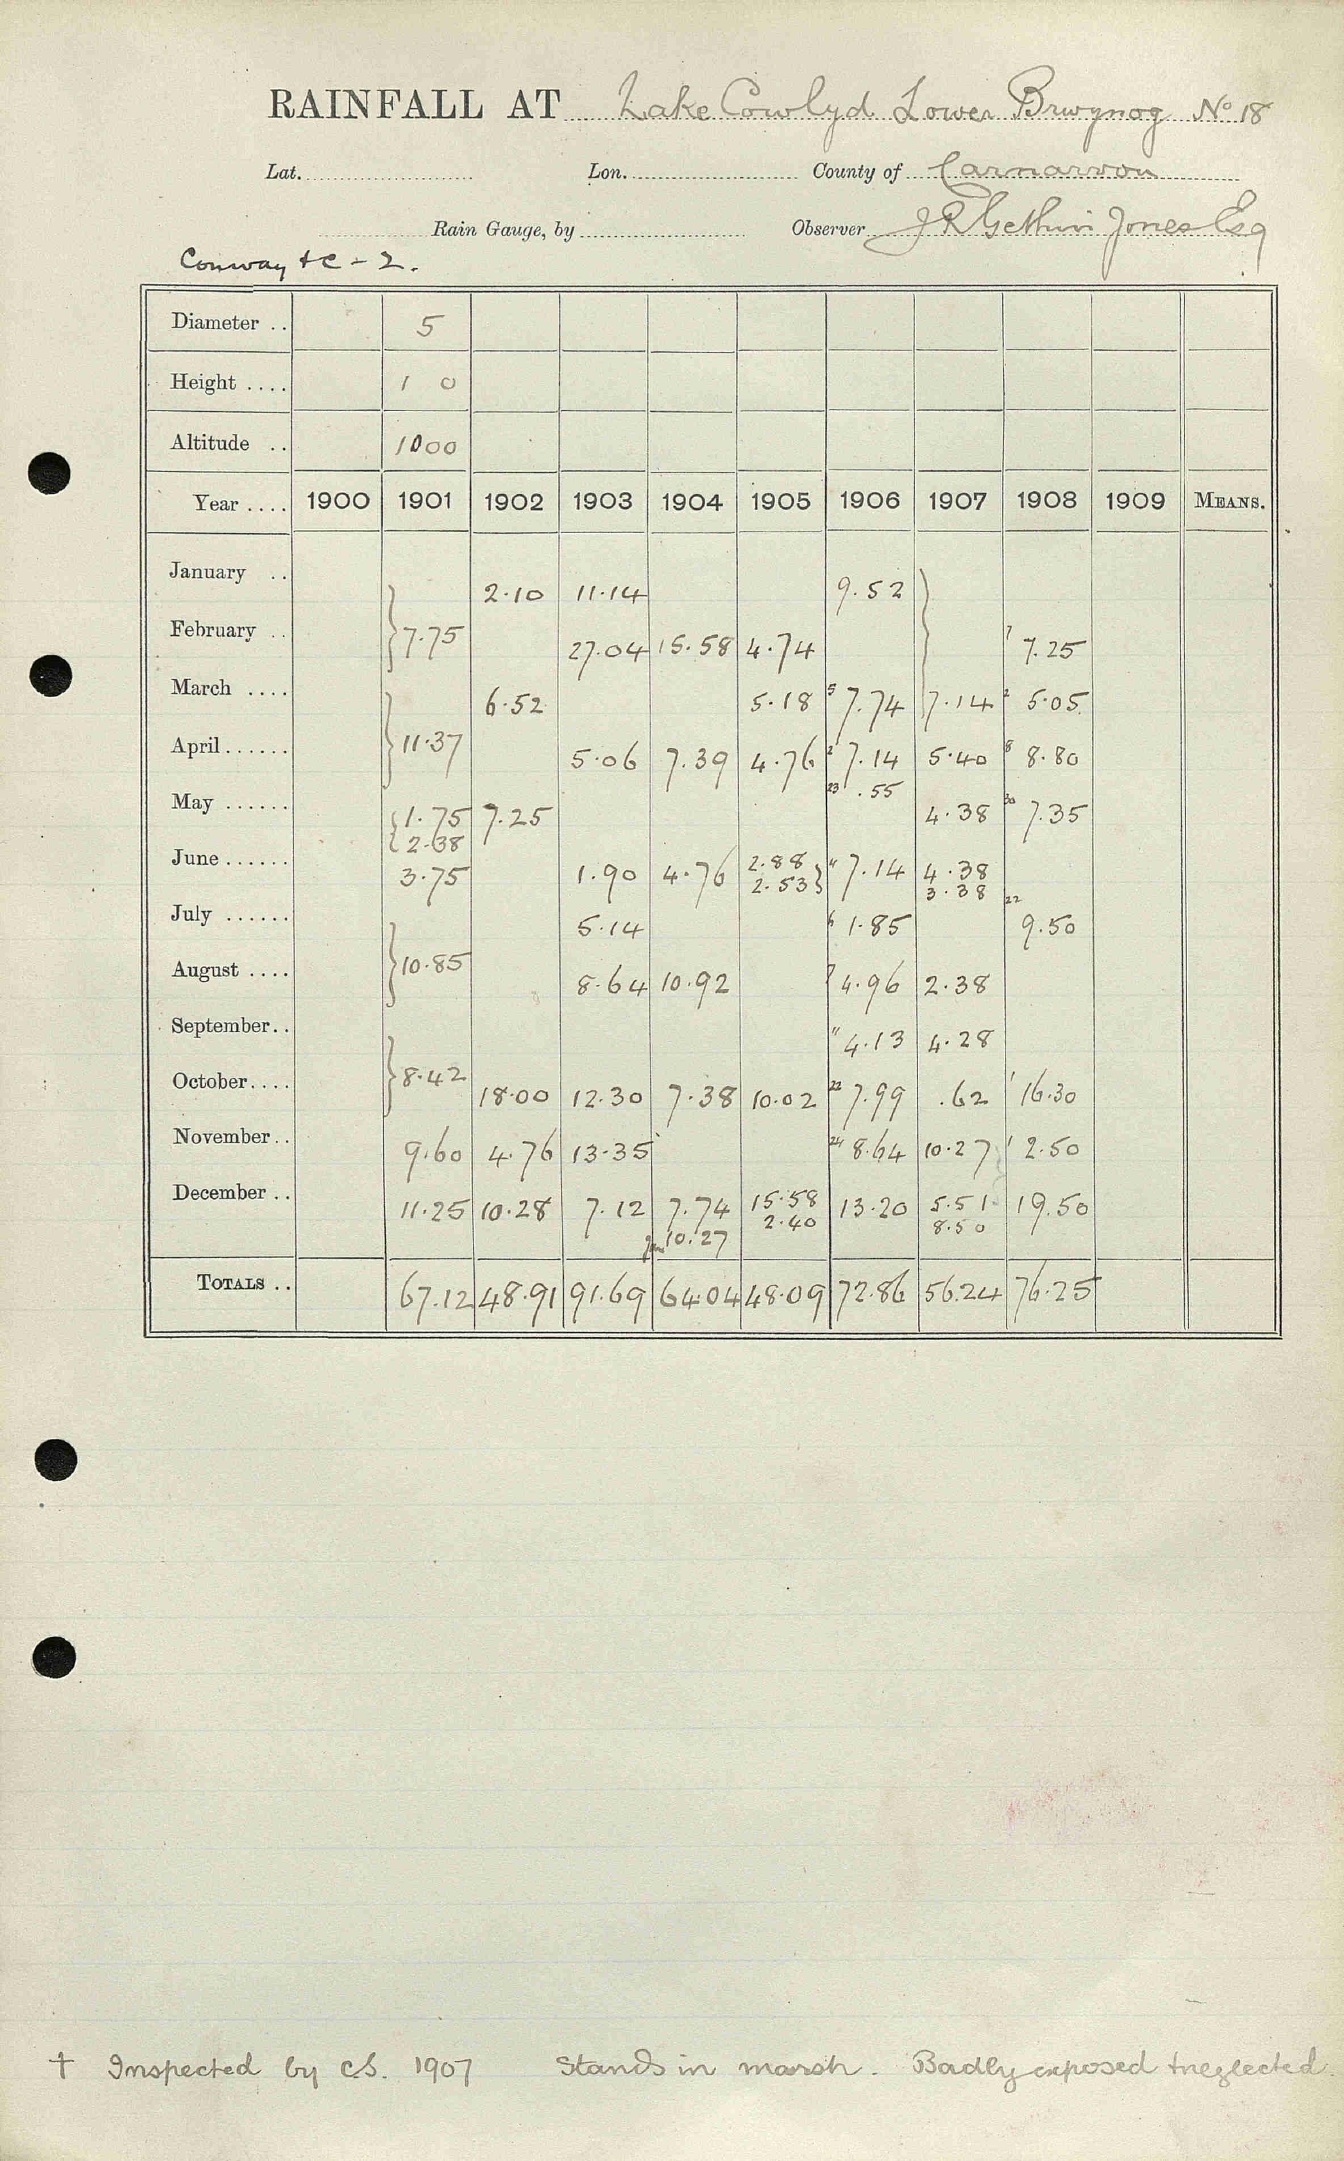 RAINFALL AT Lake Cowlyd Lower Brwynog No 18
Lat. Lon. County of Carnarvon
Rain Gauge, by Observer J R Gethin Jones Esq
Conway + c - 2.
Diameter .. 5
Height .... 1 0
Altitude .. 1000
Year .... 1900 1901 1902 1903 1904 1905 1906 1907 1908 1909 MEANS.
January .. 2.10 11.14 9.52
February .. 7.75 27.04 15.58 4.74 7 7.25
March .... 6.52 5.18 5 7.74 7.14 2 5.05
April...... 11.37 5.06 7.39 4.76 2 7.14 5.40 8 8.80
23 .55
May ...... 1.75 7.25 4.38 30 7.35
2.38
June ...... 3.75 1.90 4.76 2.88 11 7.14 4.38
2.53 3.38
July ...... 5.14 6 1.85 22 9.50
August .... 10.85 8.64 10.92 7 4.96 2.38
September.. 11 4.13 4.28
October.... 8.42 18.00 12.30 7.38 10.02 22 7.99 .62 1 16.30
November.. 9.60 4.76 13.35 24 8.64 10.27 1 2.50
December .. 11.25 10.28 7.12 7.74 15.58 13.20 5.51 19.50
Jan 10.27 2.40 8.50
TOTALS .. 67.12 48.91 91.69 64.04 48.09 72.86 56.24 76.25
† Inspected by C.S. 1907 Stands in marsh. Badly exposed + neglected.